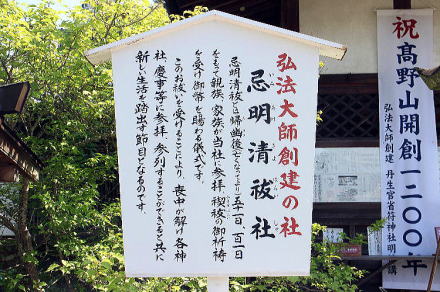 弘法大師創建の社
忌明清祓社
忌明清祓は帰幽後亡くなりまして五十日、百一日
をもって親族、家族が当社に参拝、禊祓の御祈祷
を受け御幣を賜わる儀式です。
このお祓いを受けることにより、喪中が解け各神
社、慶事等に参拝、参列することができると共に
新しい生活を踏出す節目となるのです。
祝高野山開創一二〇〇年
弘法大師創建 丹生官省符神社明神講